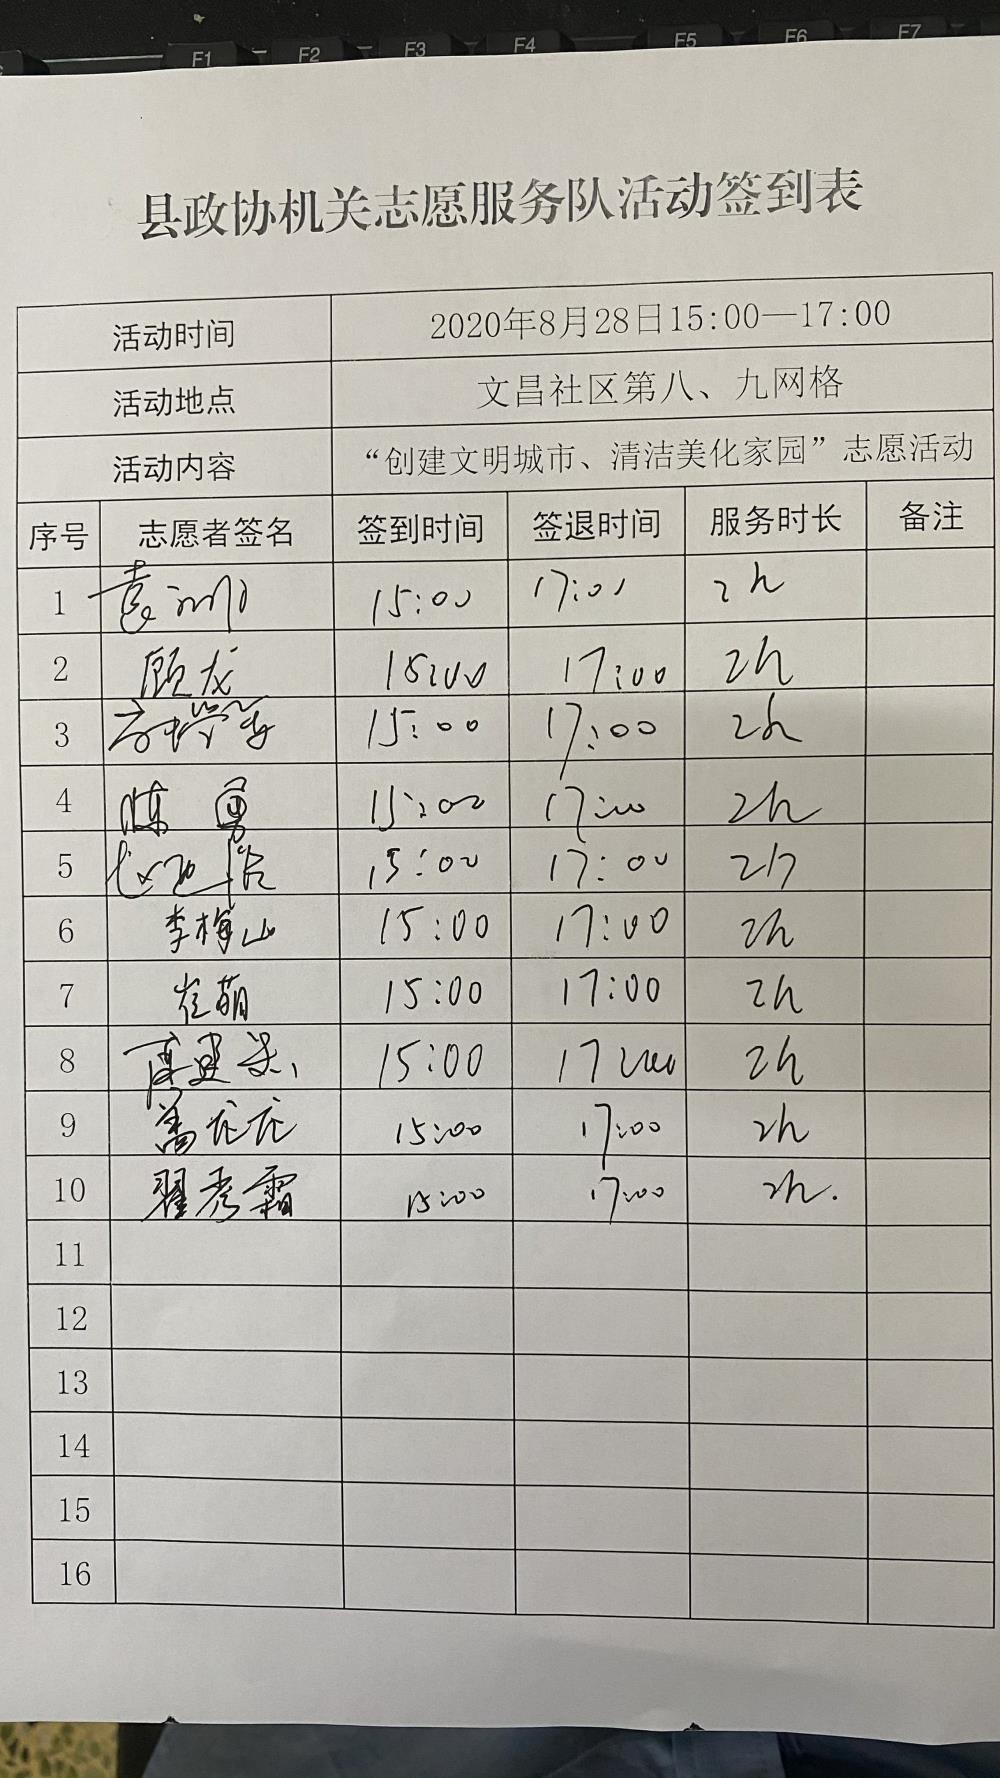 F1 F2 F3 F4 F5 F6 F7
县政协机关志愿服务队活动签到表
活动时间 2020年8月28日15:00—17:00
活动地点 文昌社区第八、九网格
活动内容 “创建文明城市、清洁美化家园”志愿活动
序号 志愿者签名 签到时间 签退时间 服务时长 备注
1 15:00 17:00 2h
2 顾龙 15:00 17:00 2h
3 15:00 17:00 2h
4 陈勇 15:00 17:00 2h
5 15:00 17:00 2h
6 李梅山 15:00 17:00 2h
7 崔萌 15:00 17:00 2h
8 15:00 17:00 2h
9 15:00 17:00 2h
10 翟秀霜 15:00 17:00 2h.
11
12
13
14
15
16